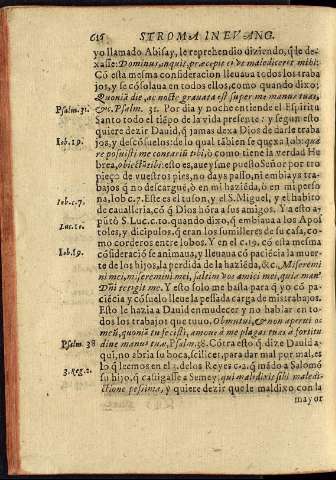 616 STROMA IN EVANG.
yo llamado Abisay, le reprehendio diziendo, q̃ le de-
xasse: Dominus, inquit, præcepit ei vt malediceret mihi:
Cō esta mesma consideracion lleuaua todos los traba
jos, y se cōsolaua en todos ellos, como quando dixo;
Quoniā die, ac nocte grauata est super me manus tua,
Psalm. 31. &c. Psalm. 31. Por dia y noche entiende el Espiritu
Santo todo el tiēpo de la vida presente: y segun esto
quiere dezir Dauid, q̃ jamas dexa Dios de darle traba
Iob. 19. jos, y descōsuelos: de lo qual tābien se quexa Iob: qua
re posuisti me contrariū tibi, ò como tiene la verdad He
brea, obiectaculū: esto es, aueysme puesto Señor por tro
pieço de vuestros pies, no days passo, ni embiays tra-
bajos q̃ no descargué, ò en mi haziēda, ò en mi perso
Iob. c. 7. na, Iob c. 7. Este es el tuson, y el S. Miguel, y el habito
de caualleria, cō q̃ Dios hōra a los amigos. Y a esto a-
Luc. 10. pūtò S. Luc. c. 10. quando dixo, q̃ embiaua a los Apos
toles, y dicipulos, q̃ eran los sumilleres de su casa, co-
mo corderos entre lobos. Y en el c. 19. cō esta mesma
Iob. 19. cōsideraciō se animaua, y lleuaua cō paciēcia la muer-
te de los hijos, la perdida de la haziēda, &c. Miseremi
ni mei, miseremini mei, saltim vos amici mei, quia man
Dñi tetigit me. Y esto solo me basta para q̃ yo cō pa-
ciēcia y cōsuelo lleue la pessada carga de mis trabajos.
Esto le hazia a Dauid enmudecer y no hablar en to-
dos los trabajos que tuuo. Obmutui, & non aperui os
meū, quoniā tu fecisti, amoue a me plagas tuas à fortitu
Psalm. 38 dine manus tuæ, Psalm. 38. Cōtra esto q̃ dize Dauid a-
qui, no abria su boca, scilicet, para dar mal por mal, es
3. Reg. 2. lo q̃ leemos en el 3. de los Reyes c. 2. q̃ mādò a Salomō
su hijo, q̃ castigasse a Semey, qui maldixit sibi maledi-
ctione pessima, y quiere dezir que le maldixo con la
mayor